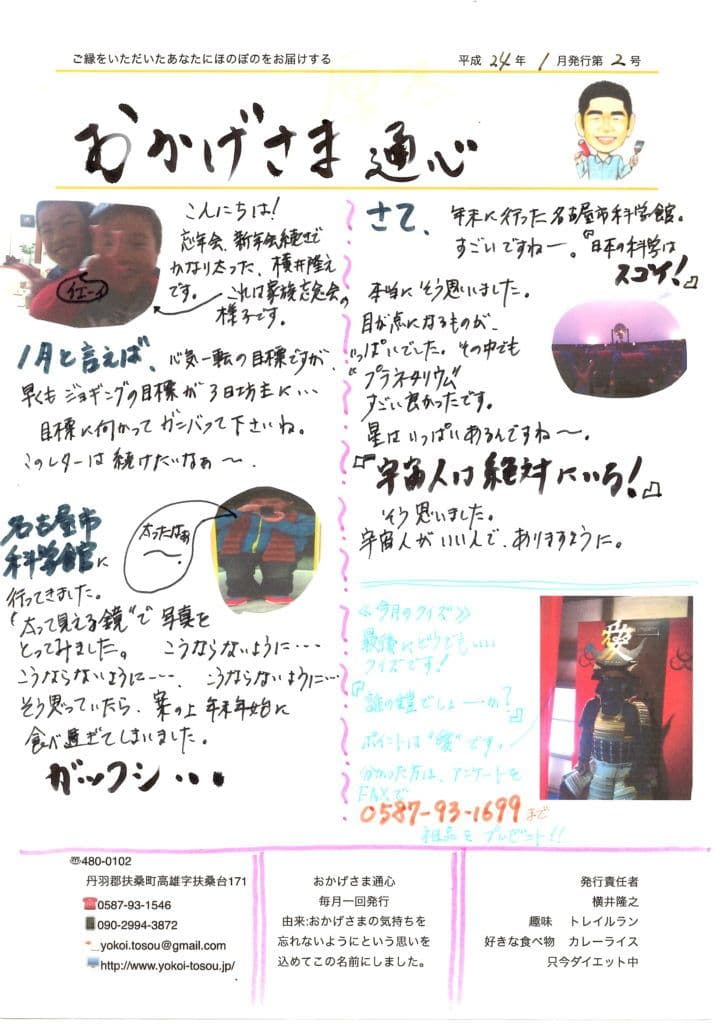 ご縁をいただいたあなたにほのぼのをお届けする
平成 24 年 1 月発行第 2 号
おかげさま通心
こんにちは!
忘年会、新年会続きで
かなり太った、横井隆之
です。 これは家族忘年会の
様子です。
イエーイ
1月と言えば、心気一転の目標ですが、
早くもジョギングの目標が3日坊主に…
目標に向かってガンバって下さいね。
このレターは続けたいなぁ〜。
名古屋市
科学館に
太ったなぁ
〜。
行ってきました。
"太って見える鏡"で写真を
とってみました。 こうならないように…
こうならないように…、こうならないように…
そう思っていたら、案の上年末年始に
食べ過ぎてしまいました。
ガックシ・・・
さて、年末に行った名古屋市科学館。
すごいですねー。『日本の科学は
スゴイ!』
本当にそう思いました。
目が点になるものが、
いっぱいでした。その中でも
"プラネタリウム"
すごい良かったです。
星はいっぱいあるんですね〜。
『宇宙人は絶対にいる!』
そう思いました。
宇宙人がいい人で、ありますように。
≪今月のクイズ≫
最後にどうでもいい
クイズです!
『誰の鎧でしょーか?』
ポイントは"愛"です。
分かった方は、アンケートを
FAXで
0587-93-1699まで
粗品をプレゼント!!
愛
〒480-0102
丹羽郡扶桑町高雄字扶桑台171
☎0587-93-1546
090-2994-3872
yokoi.tosou@gmail.com
http://www.yokoi-tosou.jp/
おかげさま通心
毎月一回発行
由来:おかげさまの気持ちを
忘れないようにという思いを
込めてこの名前にしました。
発行責任者
横井隆之
趣味 トレイルラン
好きな食べ物 カレーライス
只今ダイエット中